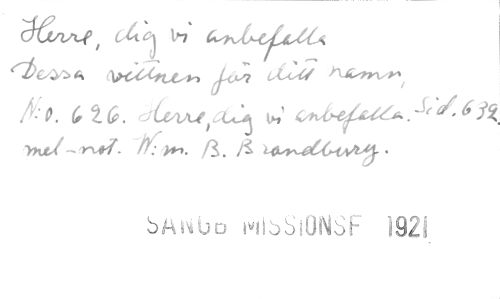 Herre, dig vi anbefalla
Dessa vittnen för ditt namn,
N:o. 626. Herre, dig vi anbefalla. Sid. 632.
mel-not. W:m. B. Brandbury.
SANGB MISSIONSF 1921